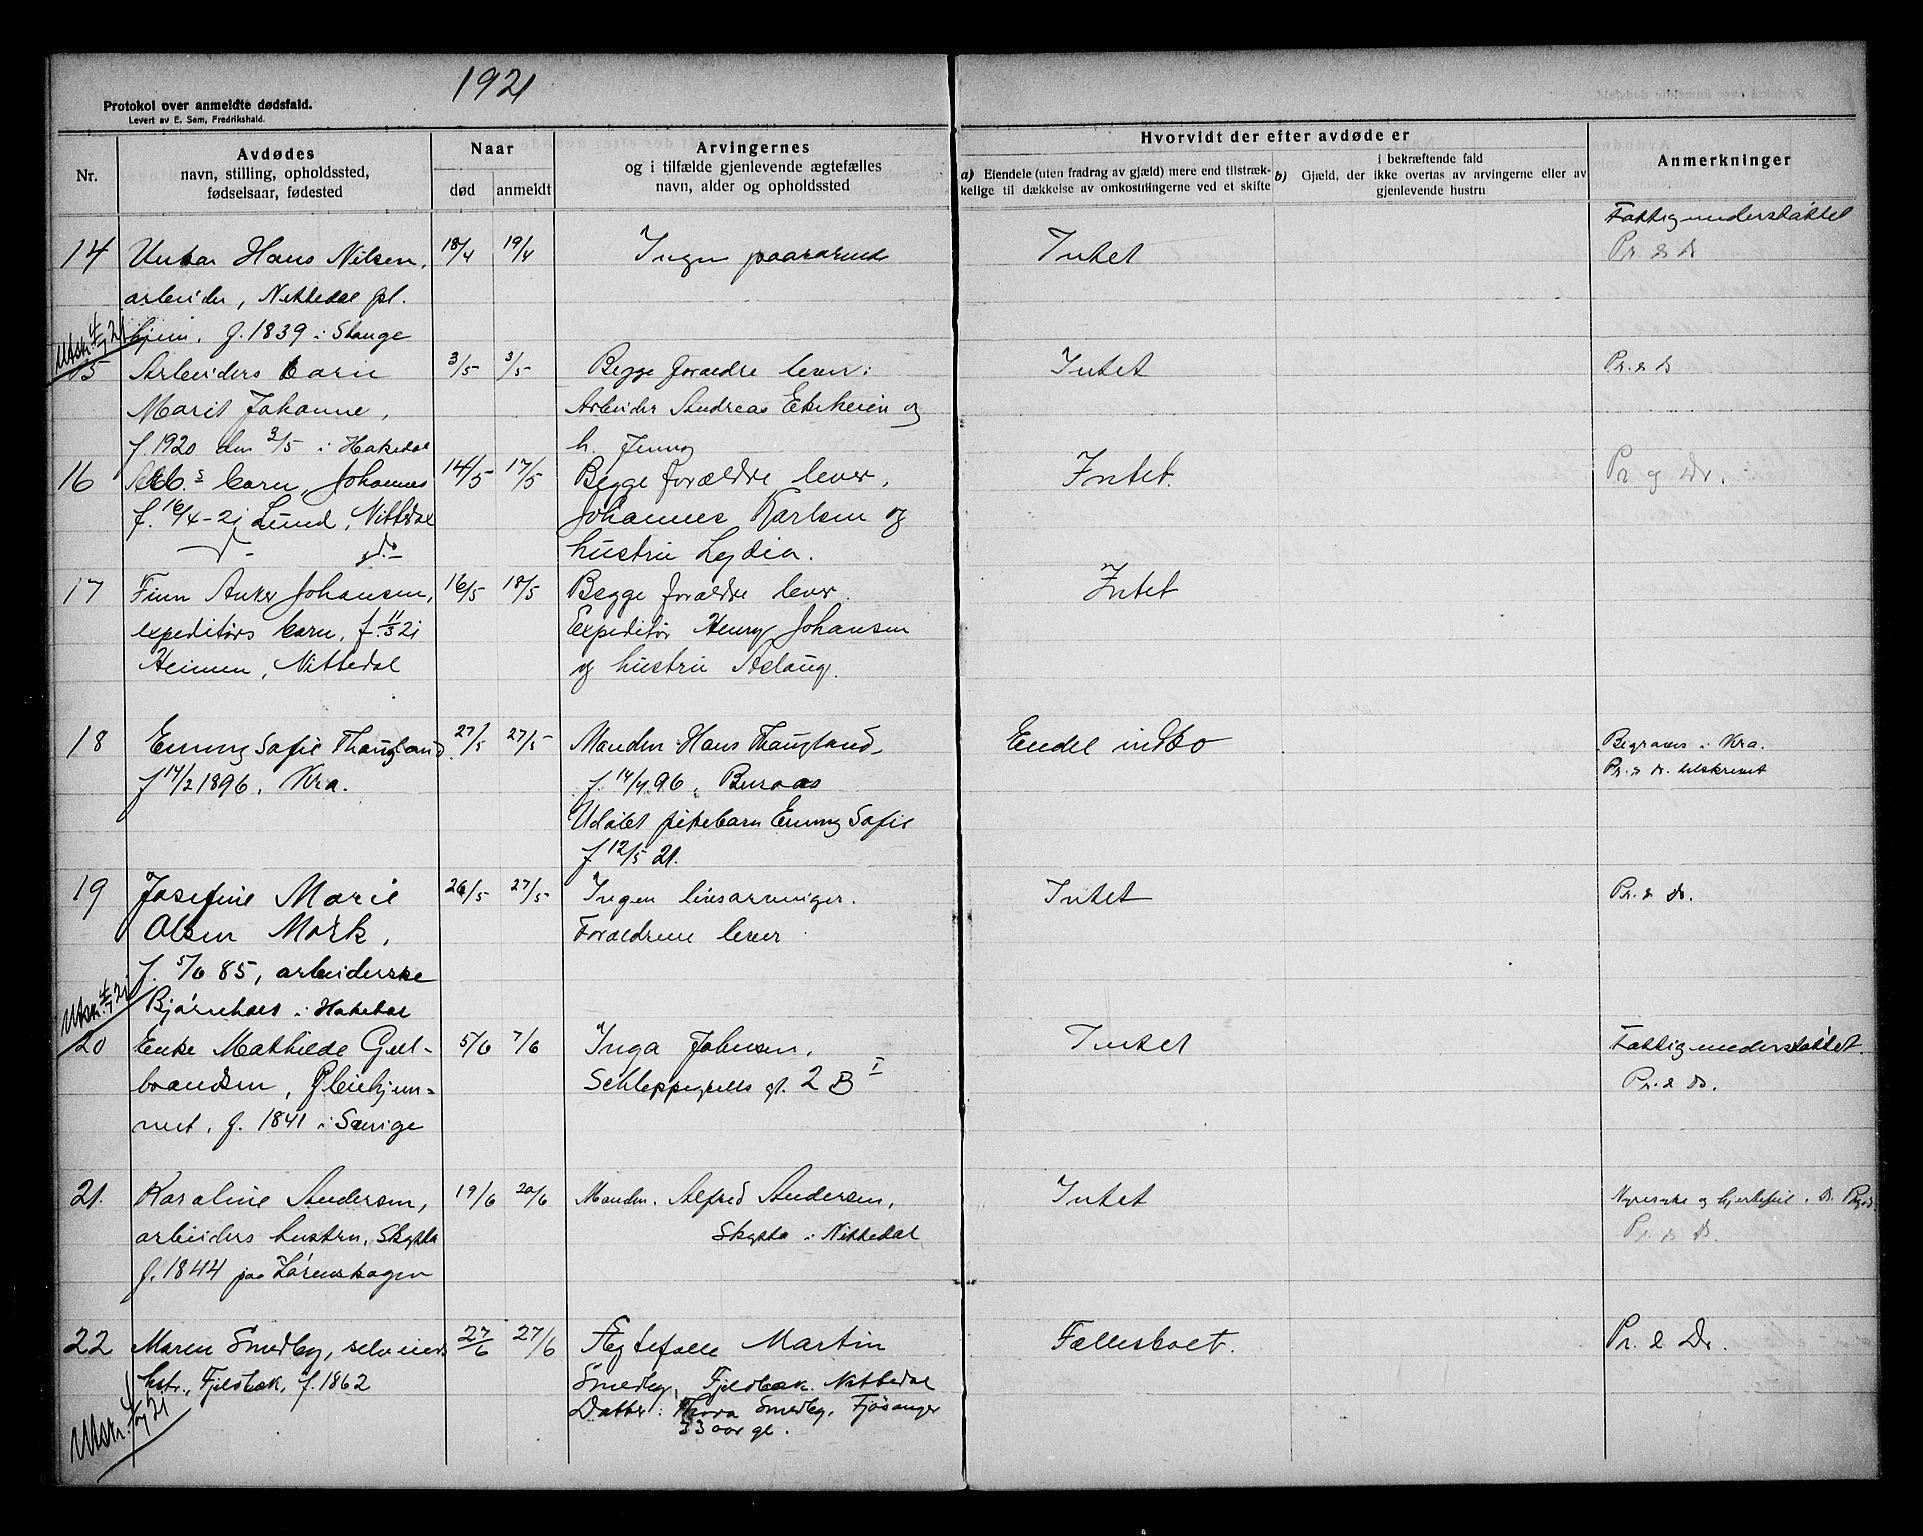 1921
Protokol over anmeldte dødsfald.
Levert av E. Sem, Fredrikshald.
Nr.
Avdødes
navn, stilling, opholdssted,
fødselsaar, fødested
Naar
død
anmeldt
Arvingernes
og i tilfælde gjenlevende ægtefælles
navn, alder og opholdssted
Hvorvidt der efter avdøde er
a) Eiendele (uten fradrag av gjæld) mere end tilstræk-
kelige til dækkelse av omkostningerne ved et skifte
i bekræftende fald
b) Gjæld, der ikke overtas av arvingerne eller av
gjenlevende hustru
Anmerkninger
14 Hans Nilsen, 18/4 19/4 Ingen Intet Fattigunderstøttet
arbeider, Nittedal pl. Pr. & Dr
hjem. f. 1839 i Stange
Utskr. 4/7 21
15 Arbeiders barn 3/5 3/5 Begge foraldre lever: Intet Pr. & Dr
Marit Johanne, Arbeider Andreas og
f. 1920 den 3/5 i Hakedal h. Jenny
16 barn, Johannes 14/5 17/5 Begge forældre lever, Intet. Pr og Dr.
f. 16/4-21 Lund, Nittedal Johannes Karlsen og
hustru Lydia.
17 Finn Anker Johansen, 16/5 18/5 Begge foraldre lever. Intet
expeditørs barn, f. 11/3 21 Expeditør Henry Johansen
Heimen, Nittedal og hustru Aslaug.
18 Emmy Sofie Thaugland. 27/5 27/5 Manden Hans Thaugland, Endel indbo Begraves i Kra.
f 14/2 1896, Kra. f. 14/4 96, Buraas Pr. & Dr. tilskrevet
Udøbt pikebarn Emmy Sofie
f 12/5 21.
19 Josefine Marie 26/5 27/5 Ingen livsarvinger. Intet Pr. & Dr.
Olsen Mork, Foraldrene lever
f. 5/6 85, arbeiderske
Bjørnholt i Hakedal
Utskr. 4/7 21
20 Enke Mathilde Gul- 5/6 7/6 Inga Johnsen, Intet Fattigunderstøttet
brandsen, Pleiehjem- Schleppegrells gt. 2 B I Pr. & Dr.
met, f. 1841 i Sverige
21. Karoline Andersen, 19/6 20/6 Manden. Alfred Andersen, Intet Nyresyke og hjertefeil. Dr.
arbeiders hustru, Skytta Skytta i Nittedal Pr. & Dr.
f. 1844 paa Lørenskogen
22 Maren Smedby, selveier 27/6 27/6 Ægtefælle Martin Fællesboet. Pr. & Dr.
hstr., Fjeldbæk, f. 1862 Smedby, Fjeldbæk. Nittedal
Datter: Thora Smedby, Fjøsanger
33 aar gl.
Utskr. 4/7 21